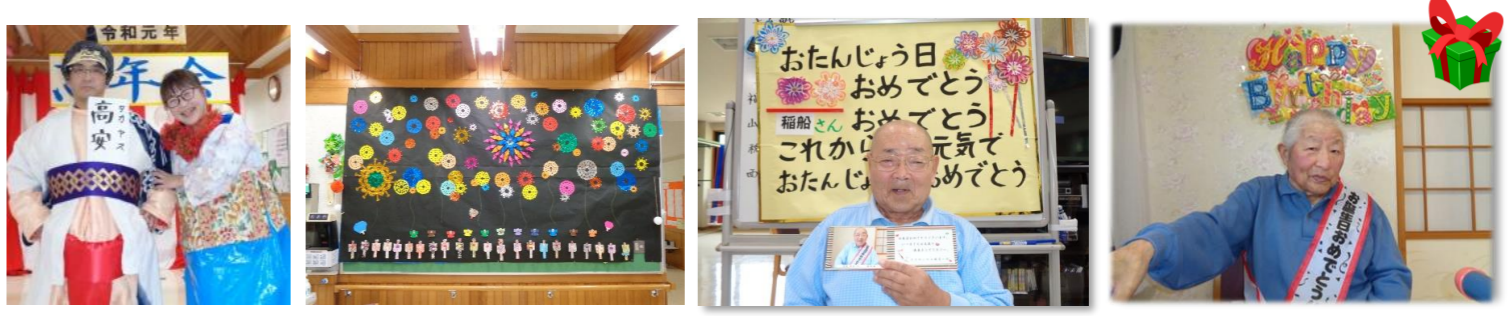 令和元年
年会
タカヤス
高安
おたんじょう日
おめでとう
稲船さん おめでとう
これから 元気で
おたんじょ おめでとう
Happy
Birthday
お誕生日おめでとう